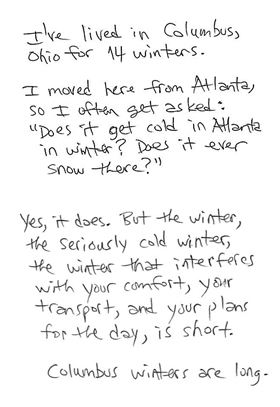 I've lived in Columbus,
Ohio for 14 winters.
I moved here from Atlanta,
so I often get asked:
"Does it get cold in Atlanta
in winter? Does it ever
snow there?"
Yes, it does. But the winter,
the seriously cold winter,
the winter that interferes
with your comfort, your
transport, and your plans
for the day, is short.
Columbus winters are long.